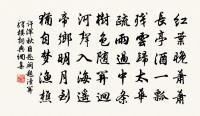 紅葉晚蕭蕭
長亭酒一瓢
殘雲歸太華
疏雨過中條
樹色隨山迥
河聲入海遙
帝鄉明日到
猶自夢漁樵
許渾秋日赴闕題潼關
驛樓詞典網集